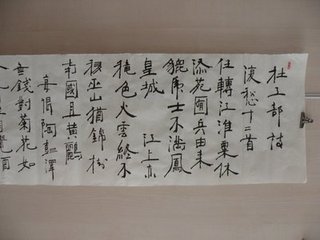 杜工部詩
復愁十二首
任轉江淮粟休
添苑囿兵由来
貔虎士不满鳳
皇城 江上亦
穐色火雲終不
移巫山猶錦樹
南國且黃鸝
每恨陶彭澤
無錢對菊花如